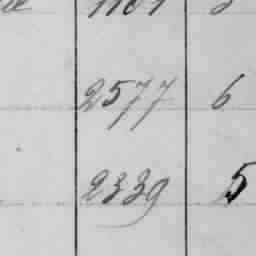 2577 6
2339 5